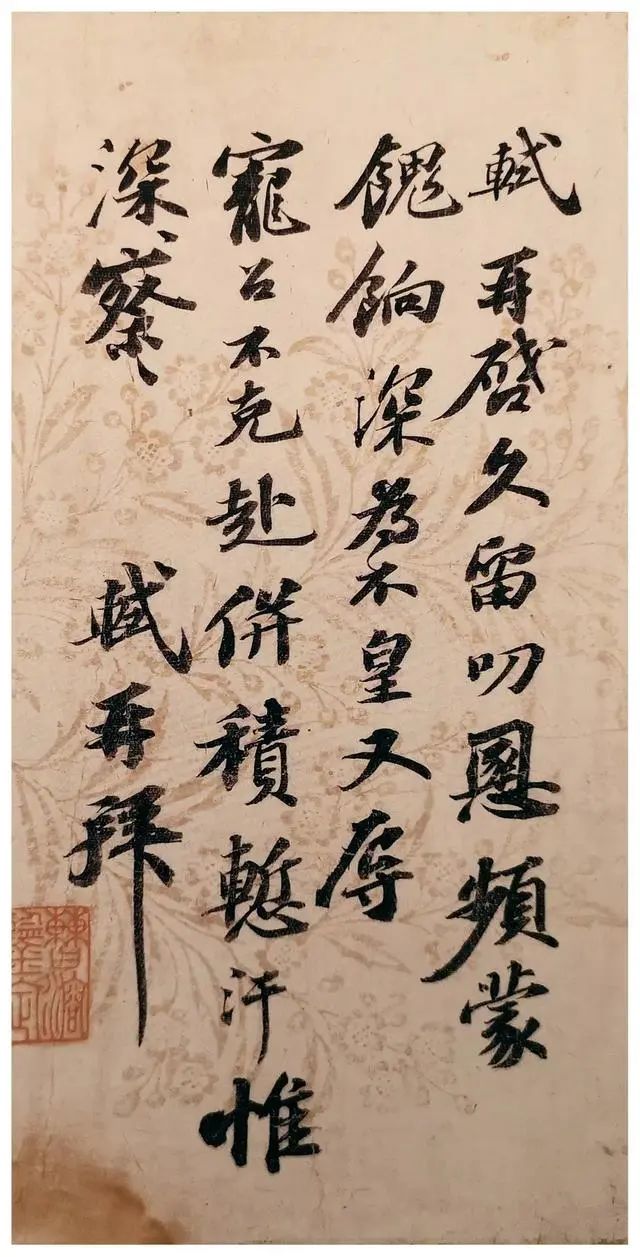 軾再啓久留叨恩頻蒙
餽餉深爲不皇又辱
寵召不克赴併積慙汗惟
深察軾再拜